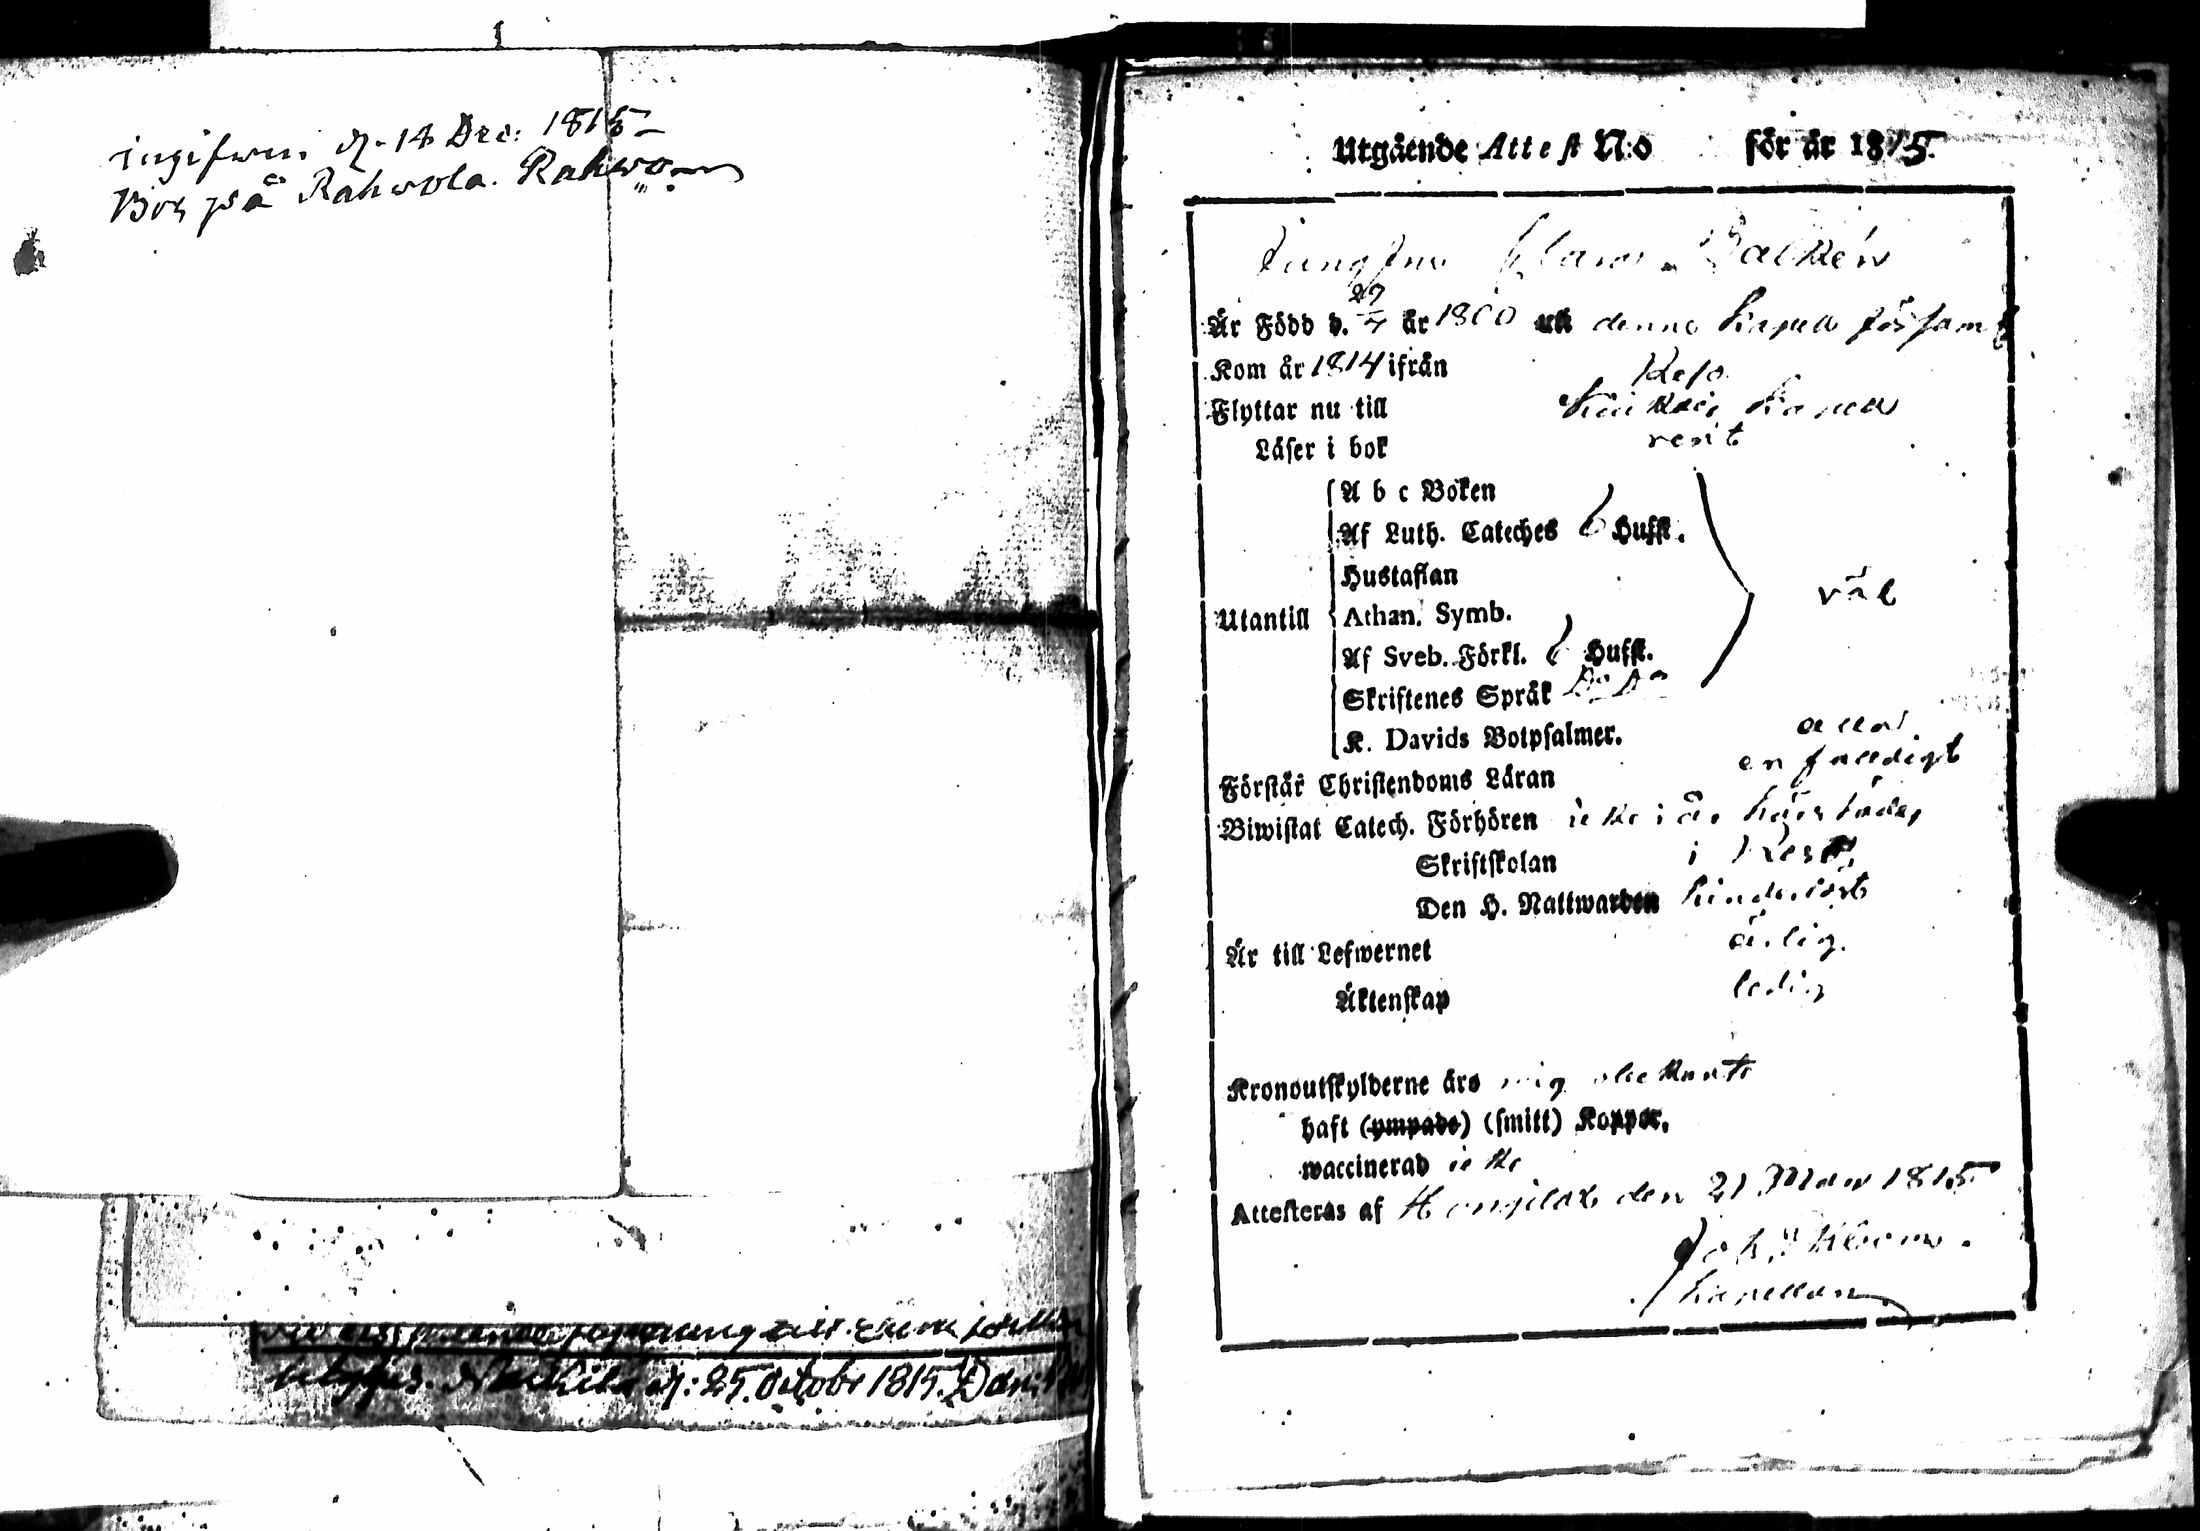 ingifwen d. 18 Dec: 1815
Bor på Rahwola. Rahwo
d: 25. Octobr 1815. Dan:
Utgående Attest N:o för år 1815.
Jungfru Clara
Är Född d. 29/4 år 1800 uti denna Kapell församl
Kom år 1814 ifrån Reso
Flyttar nu till Kapell
Läser i bok rent
A b c Boken
Af Luth. Cateches 6 Hufst.
Hustaflan
Utantill Athan. Symb. väl
Af Sveb. Förkl. 6 Hufst.
Skriftenes Språk Do Do
K. Davids Botpsalmer. alla
Förstår Christendoms Läran enfaldigt
Biwistat Catech. Förhören icke i år härstädes
Skriftskolan i Reso,
Den H. Nattwarden hinderlöst
Är till Lefwernet ärlig.
Äktenskap ledig
Kronoutskylderne äro mig obekante
haft (ympade) (smitt) Koppor.
waccinerad icke
Attesteras af Hongilax den 21 Mars 1815
Joh.
Kapellan